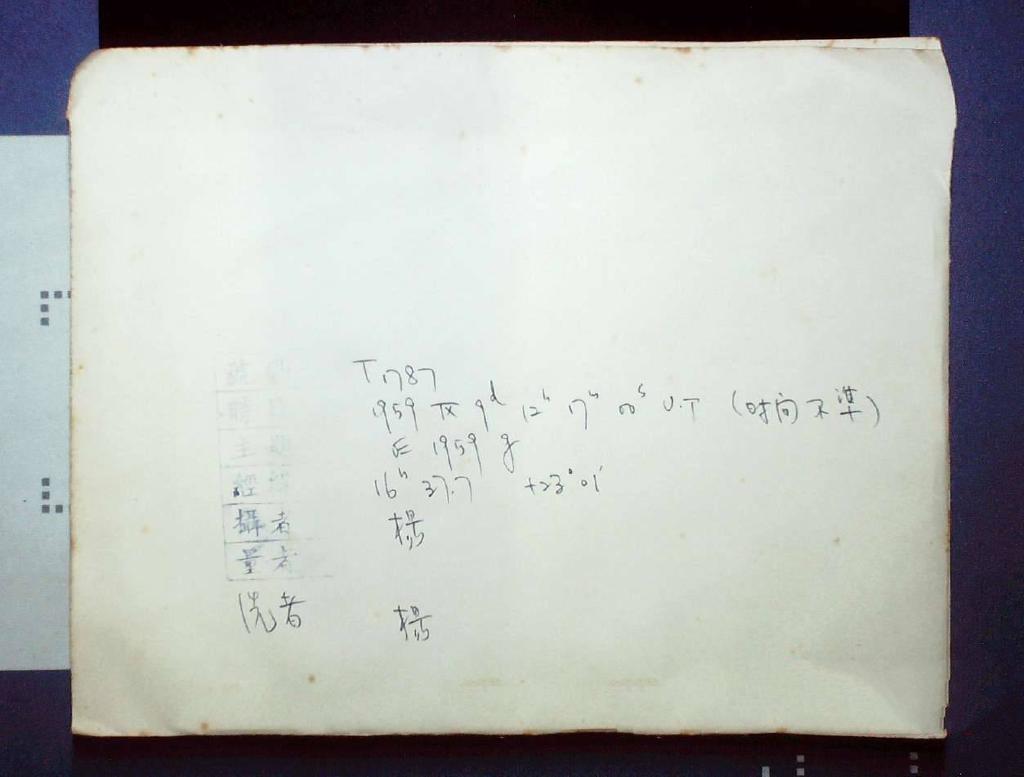 號 T 1787
時 1959 IX 9d 12h 17m 00s U.T (时间不準)
主 E 1959 g
經 16h 37.7 +23°01'
攝者 楊
量者
洗者 楊